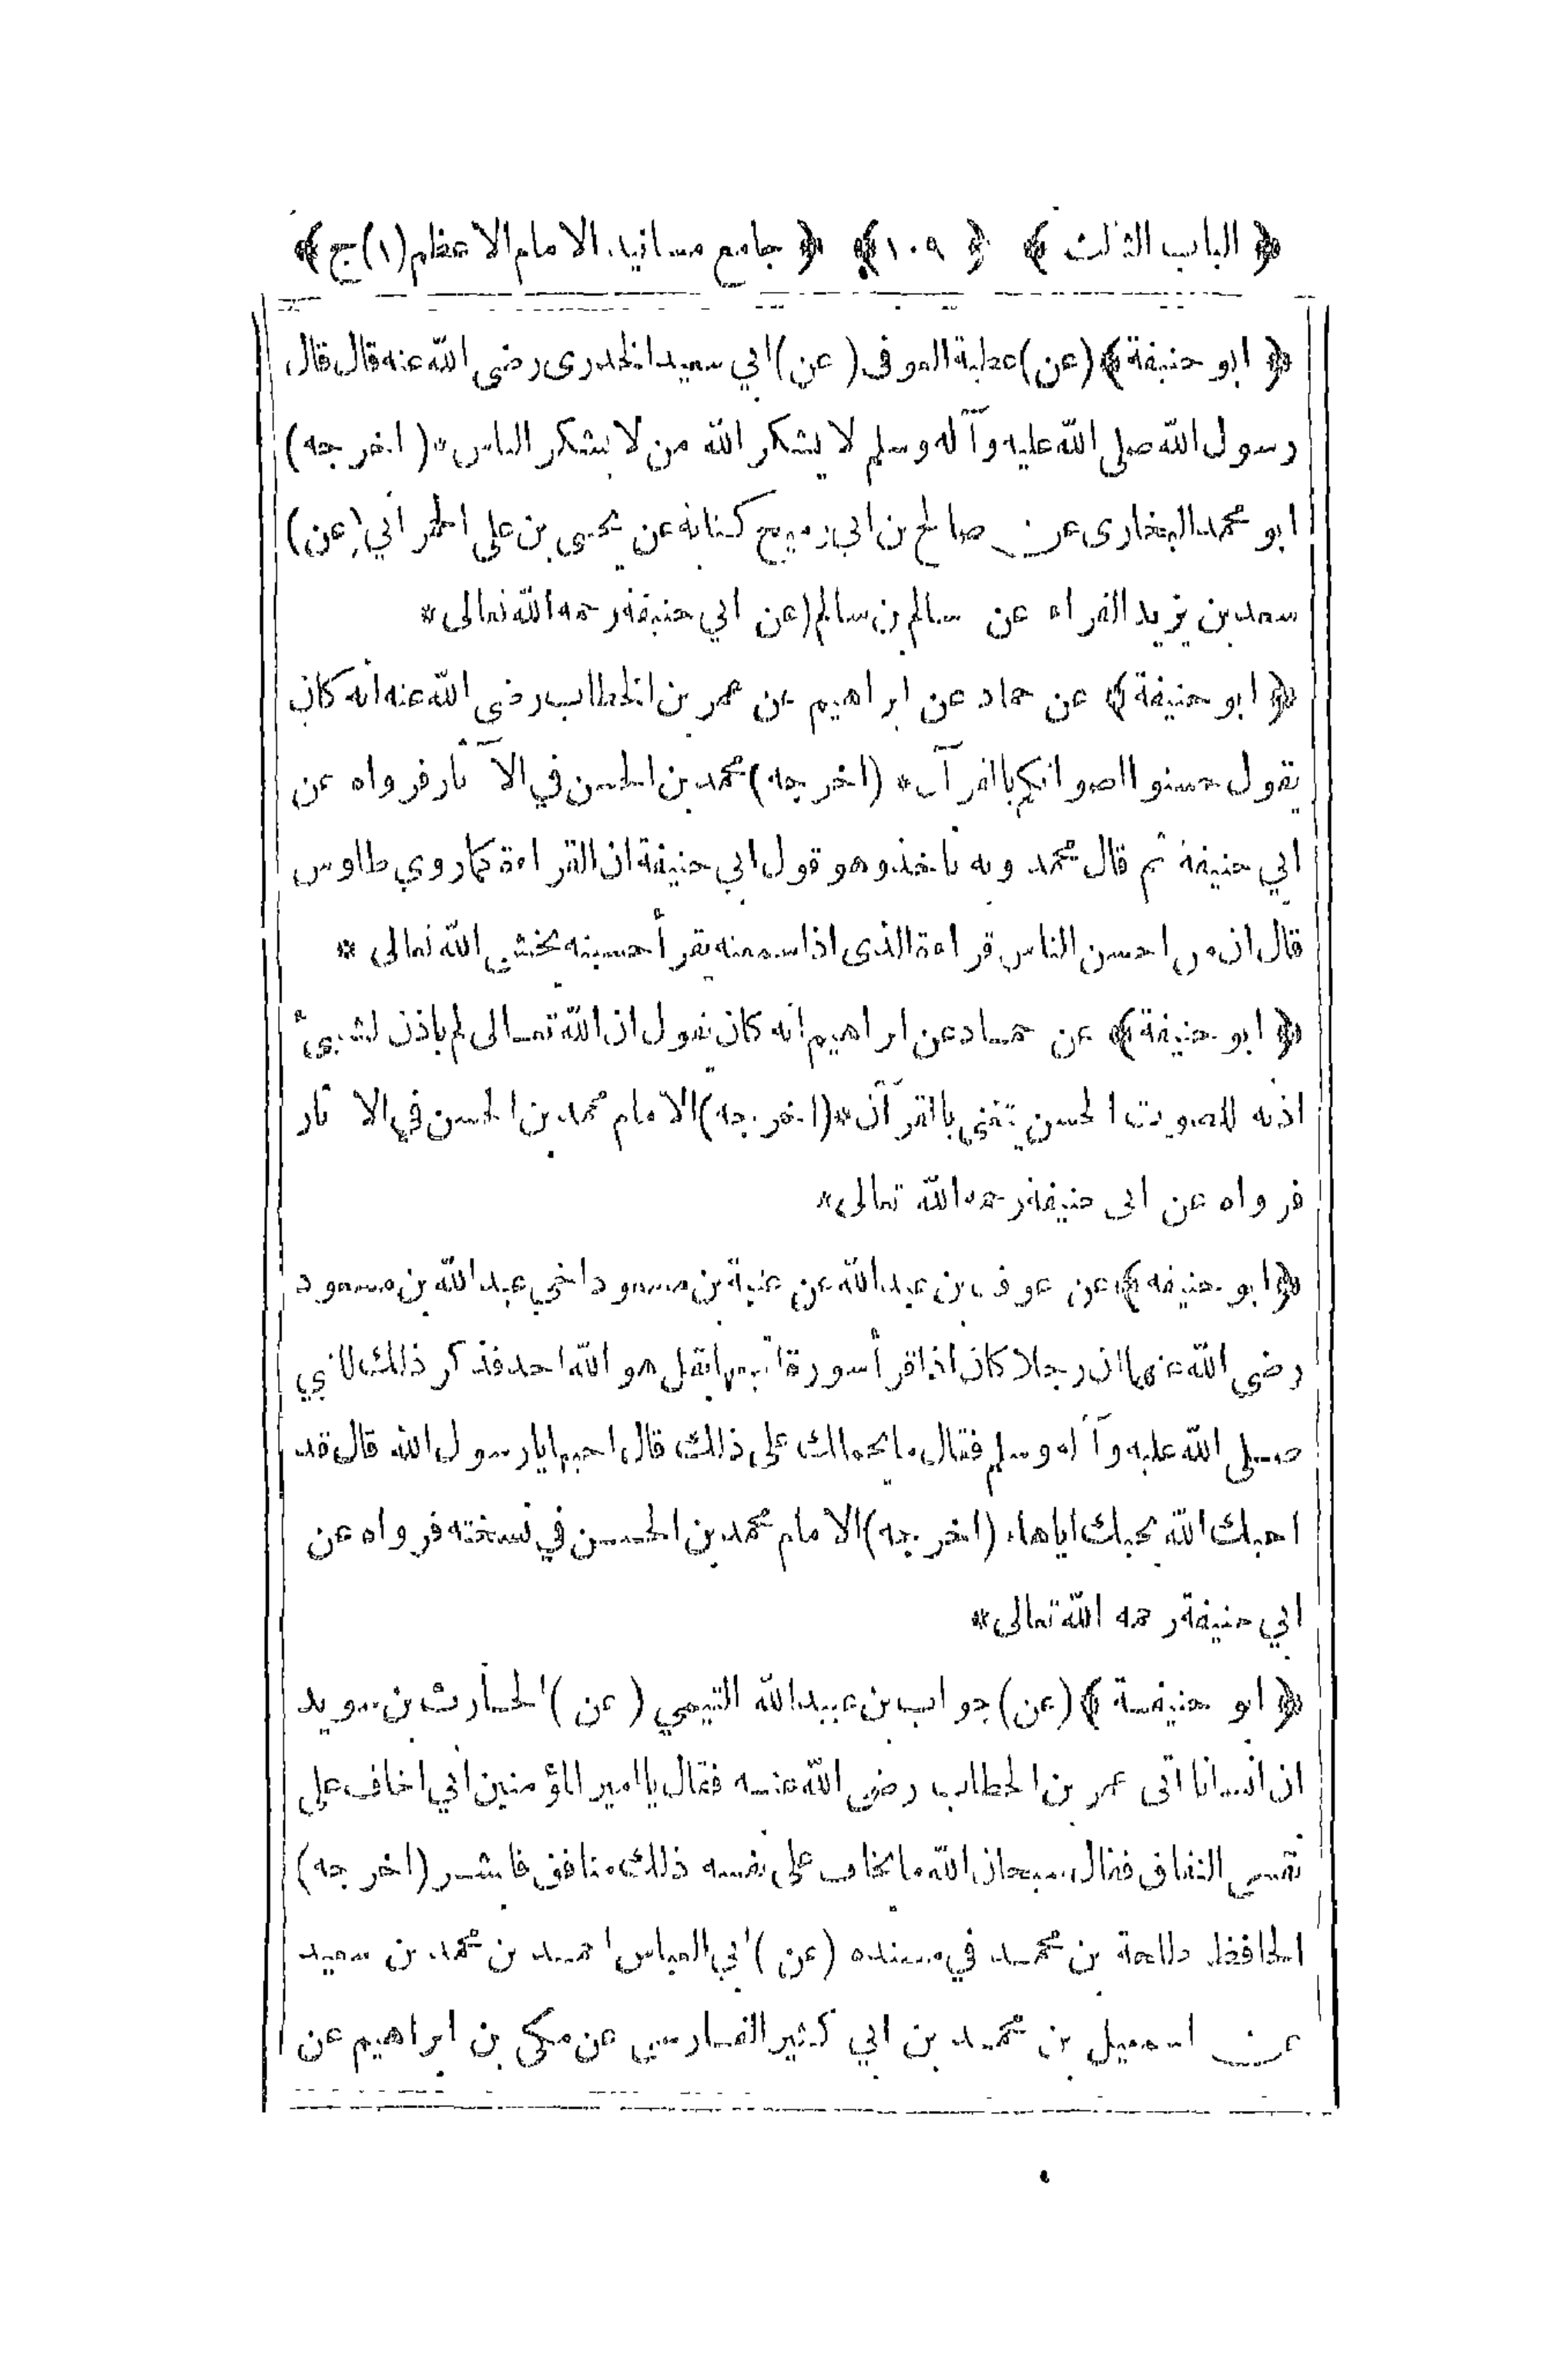 ﴿ الباب الثالث ﴾ ﴿ ١٠٩ ﴾ ﴿ جامع مسانيد الامام الاعظم (١) ج ﴾
﴿ ابو حنيفة ﴾ (عن) عطية العوفى (عن) ابي سعيد الخدرى رضى الله عنه قال قال
رسول الله صلى الله عليه وآله وسلم لا يشكر الله من لا يشكر الناس * (اخرجه)
ابو محمد البخارى عن صالح بن ابى رميح كتابة عن يحيى بن على الحمرانى (عن)
سعد بن يزيد الفراء عن سالم بن سالم (عن ابي حنيفة رحمه الله تعالى *
﴿ ابو حنيفة ﴾ عن حماد عن ابراهيم عن عمر بن الخطاب رضى الله عنه انه كان
يقول حسنوا اصواتكم بالقرآن * (اخرجه) محمد بن الحسن في الآثار فرواه عن
ابي حنيفة ثم قال محمد وبه ناخذ وهو قول ابي حنيفة ان القراءة كما روي طاوس
قال ان من احسن الناس قراءة الذى اذا سمعته يقرأ حسبته يخشى الله تعالى *
﴿ ابو حنيفة ﴾ عن حماد عن ابراهيم انه كان يقول ان الله تعالى لم ياذن لشىء
اذنه للصوت الحسن يتغنى بالقرآن * (اخرجه) الامام محمد بن الحسن في الآثار
فرواه عن ابى حنيفة رحمه الله تعالى *
﴿ ابو حنيفه ﴾ عن عون بن عبدالله عن عتبة بن مسعود اخي عبدالله بن مسعود
رضى الله عنهما ان رجلا كان اذا قرأ سورة اتبعها بقل هو الله احد فذكر ذلك للنبي
صلى الله عليه وآله وسلم فقال ما يحملك على ذلك قال احبها يا رسول الله قال قد
احبك الله بحبك اياها * (اخرجه) الامام محمد بن الحسن في نسخته فرواه عن
ابي حنيفة رحمه الله تعالى *
﴿ ابو حنيفة ﴾ (عن) جواب بن عبيدالله التيمي (عن) الحارث بن سويد
ان انسانا اتى عمر بن الخطاب رضى الله عنه فقال يا امير المؤمنين اني اخاف على
نفسى النفاق فقال سبحان الله ما يخاف على نفسه ذلك منافق فابشر (اخرجه)
الحافظ طلحة بن محمد في مسنده (عن) ابي العباس احمد بن محمد بن سعيد
عن اسمعيل بن محمد بن ابي كثير الفارسي عن مكى بن ابراهيم عن